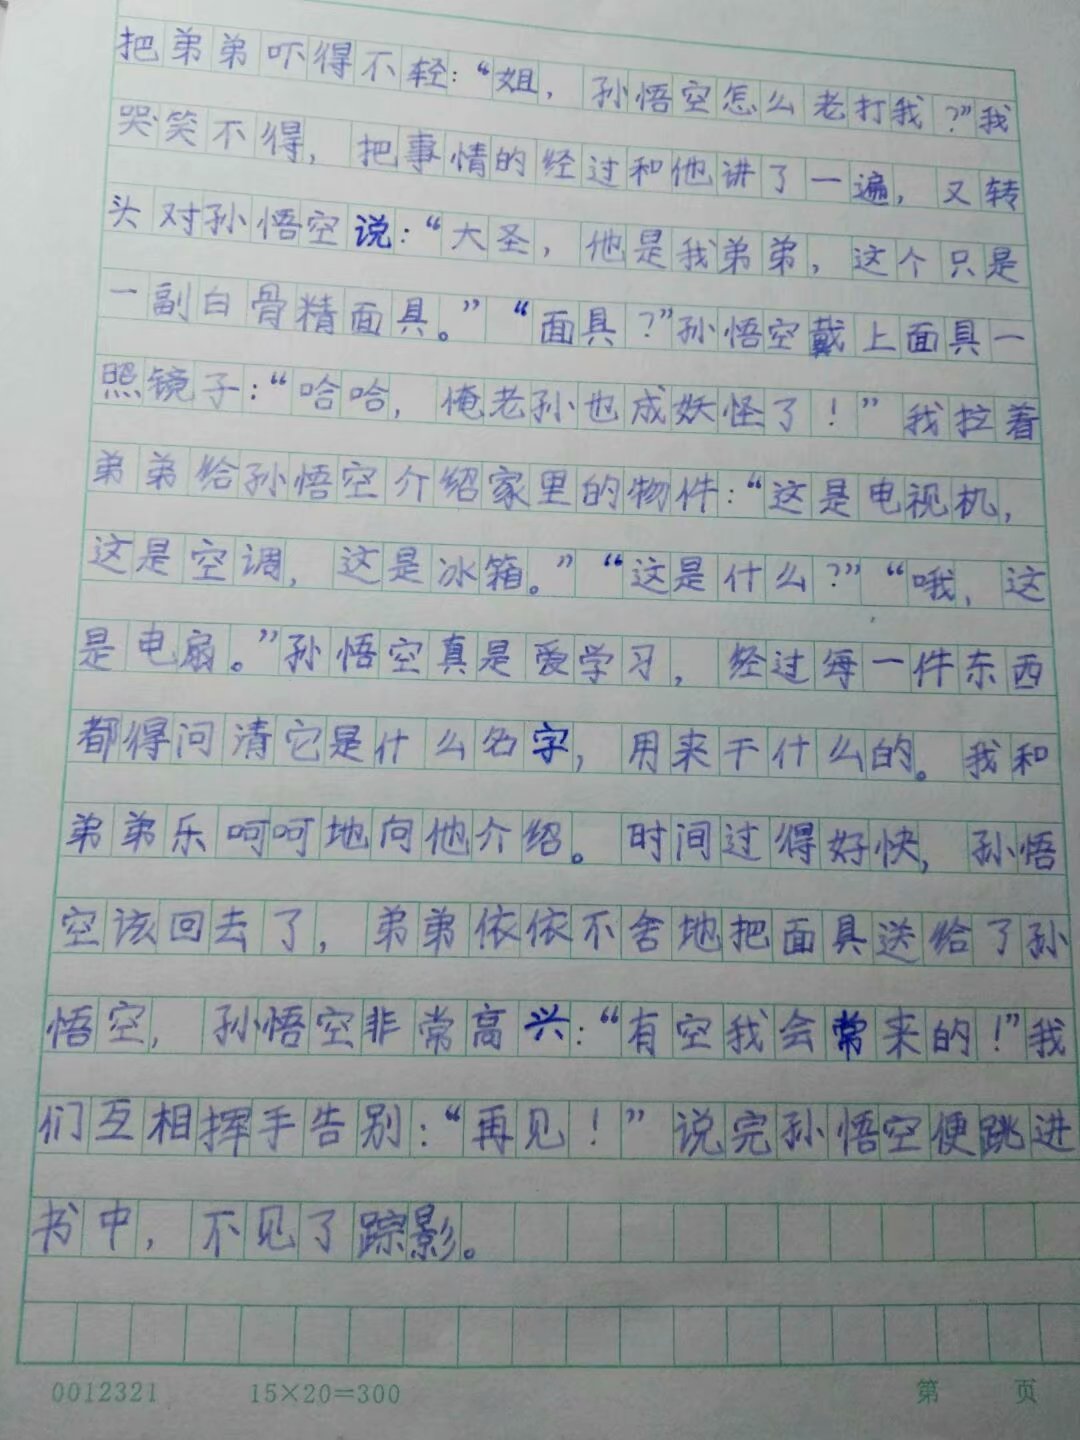 把弟弟吓得不轻：“姐，孙悟空怎么老打我？”我
哭笑不得，把事情的经过和他讲了一遍，又转
头对孙悟空说：“大圣，他是我弟弟，这个只是
一副白骨精面具。”“面具？”孙悟空戴上面具一
照镜子：“哈哈，俺老孙也成妖怪了！”我拉着
弟弟给孙悟空介绍家里的物件：“这是电视机，
这是空调，这是冰箱。”“这是什么？”“哦，这
是电扇。”孙悟空真是爱学习，经过每一件东西
都得问清它是什么名字，用来干什么的。我和
弟弟乐呵呵地向他介绍。时间过得好快，孙悟
空该回去了，弟弟依依不舍地把面具送给了孙
悟空，孙悟空非常高兴：“有空我会常来的！”我
们互相挥手告别：“再见！”说完孙悟空便跳进
书中，不见了踪影。
0012321 15×20=300 第 页